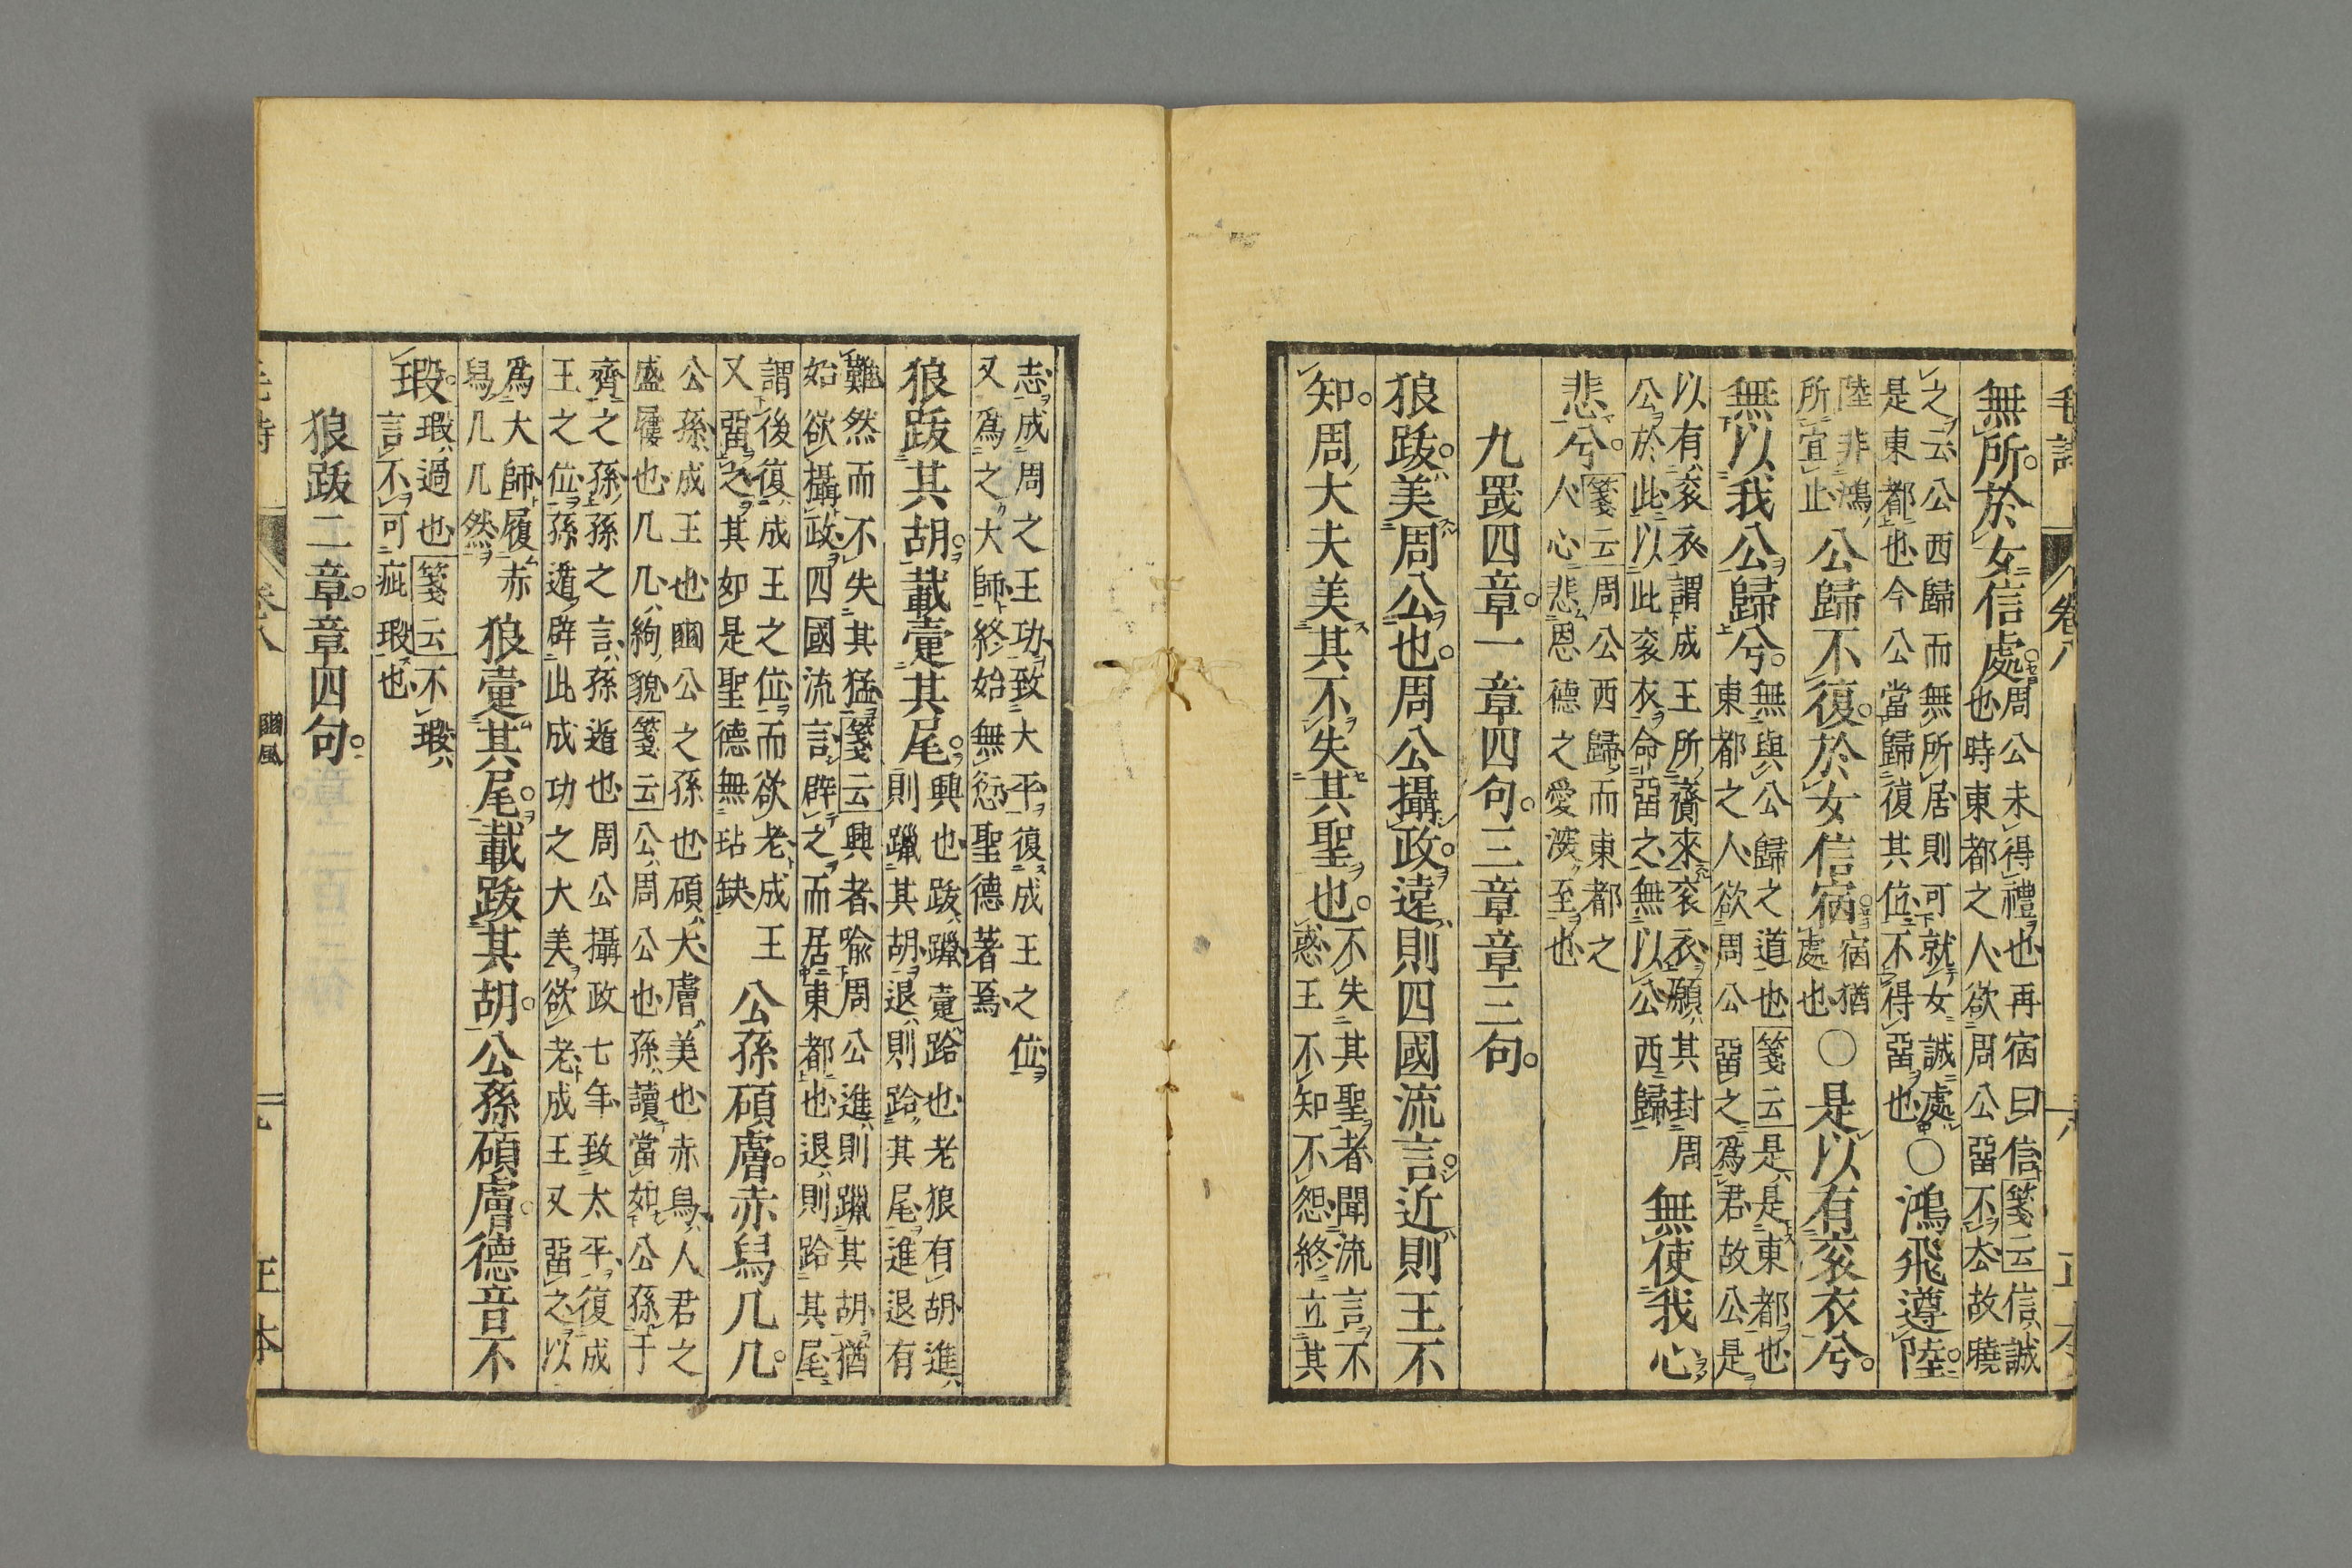 毛詩 卷八 十八 正本
無所於女信處周公未得禮也再宿曰信箋云信誠
也時東都之人欲周公畱不去故曉
之云公西歸而無所居則可就女誠處
是東都也今公當歸復其位不得畱也○鴻飛遵陸
陸非鴻
所宜止公歸不復於女信宿宿猶
處也○是以有衮衣兮
無以我公歸兮無與公歸之道也箋云是是東都也
東都之人欲周公畱之爲君故公是
以有衮衣謂成王所齎來衮衣願其封周
公於此以此衮衣命畱之無以公西歸無使我心
悲兮箋云周公西歸而東都之
人心悲恩德之愛深至也
九罭四章一章四句三章章三句
狼跋美周公也周公攝政遠則四國流言近則王不
知周大夫美其不失其聖也不失其聖者聞流言不
惑王不知不怨終立其
志成周之王功致大平復成王之位
又爲之大師終始無愆聖德著焉
狼跋其胡載疐其尾興也跋躐疐跲也老狼有胡進
則躐其胡退則跲其尾進退有
難然而不失其猛箋云興者喩周公進則躐其胡猶
始欲攝政四國流言辟之而居東都也退則跲其尾
謂後復成王之位而欲老成王
又畱之其如是聖德無玷缺公孫碩膚赤舄几几
公孫成王也豳公之孫也碩大膚美也赤舄人君之
盛屨也几几絇貌箋云公周公也孫讀當如公孫于
齊之孫孫之言孫遁也周公攝政七年致太平復成
王之位孫遁辟此成功之大美欲老成王又畱之以
爲大師履赤
舄几几然狼疐其尾載跋其胡公孫碩膚德音不
瑕瑕過也箋云不瑕
言不可疵瑕也
狼跋二章章四句
毛詩 卷八 豳風 十九 正本